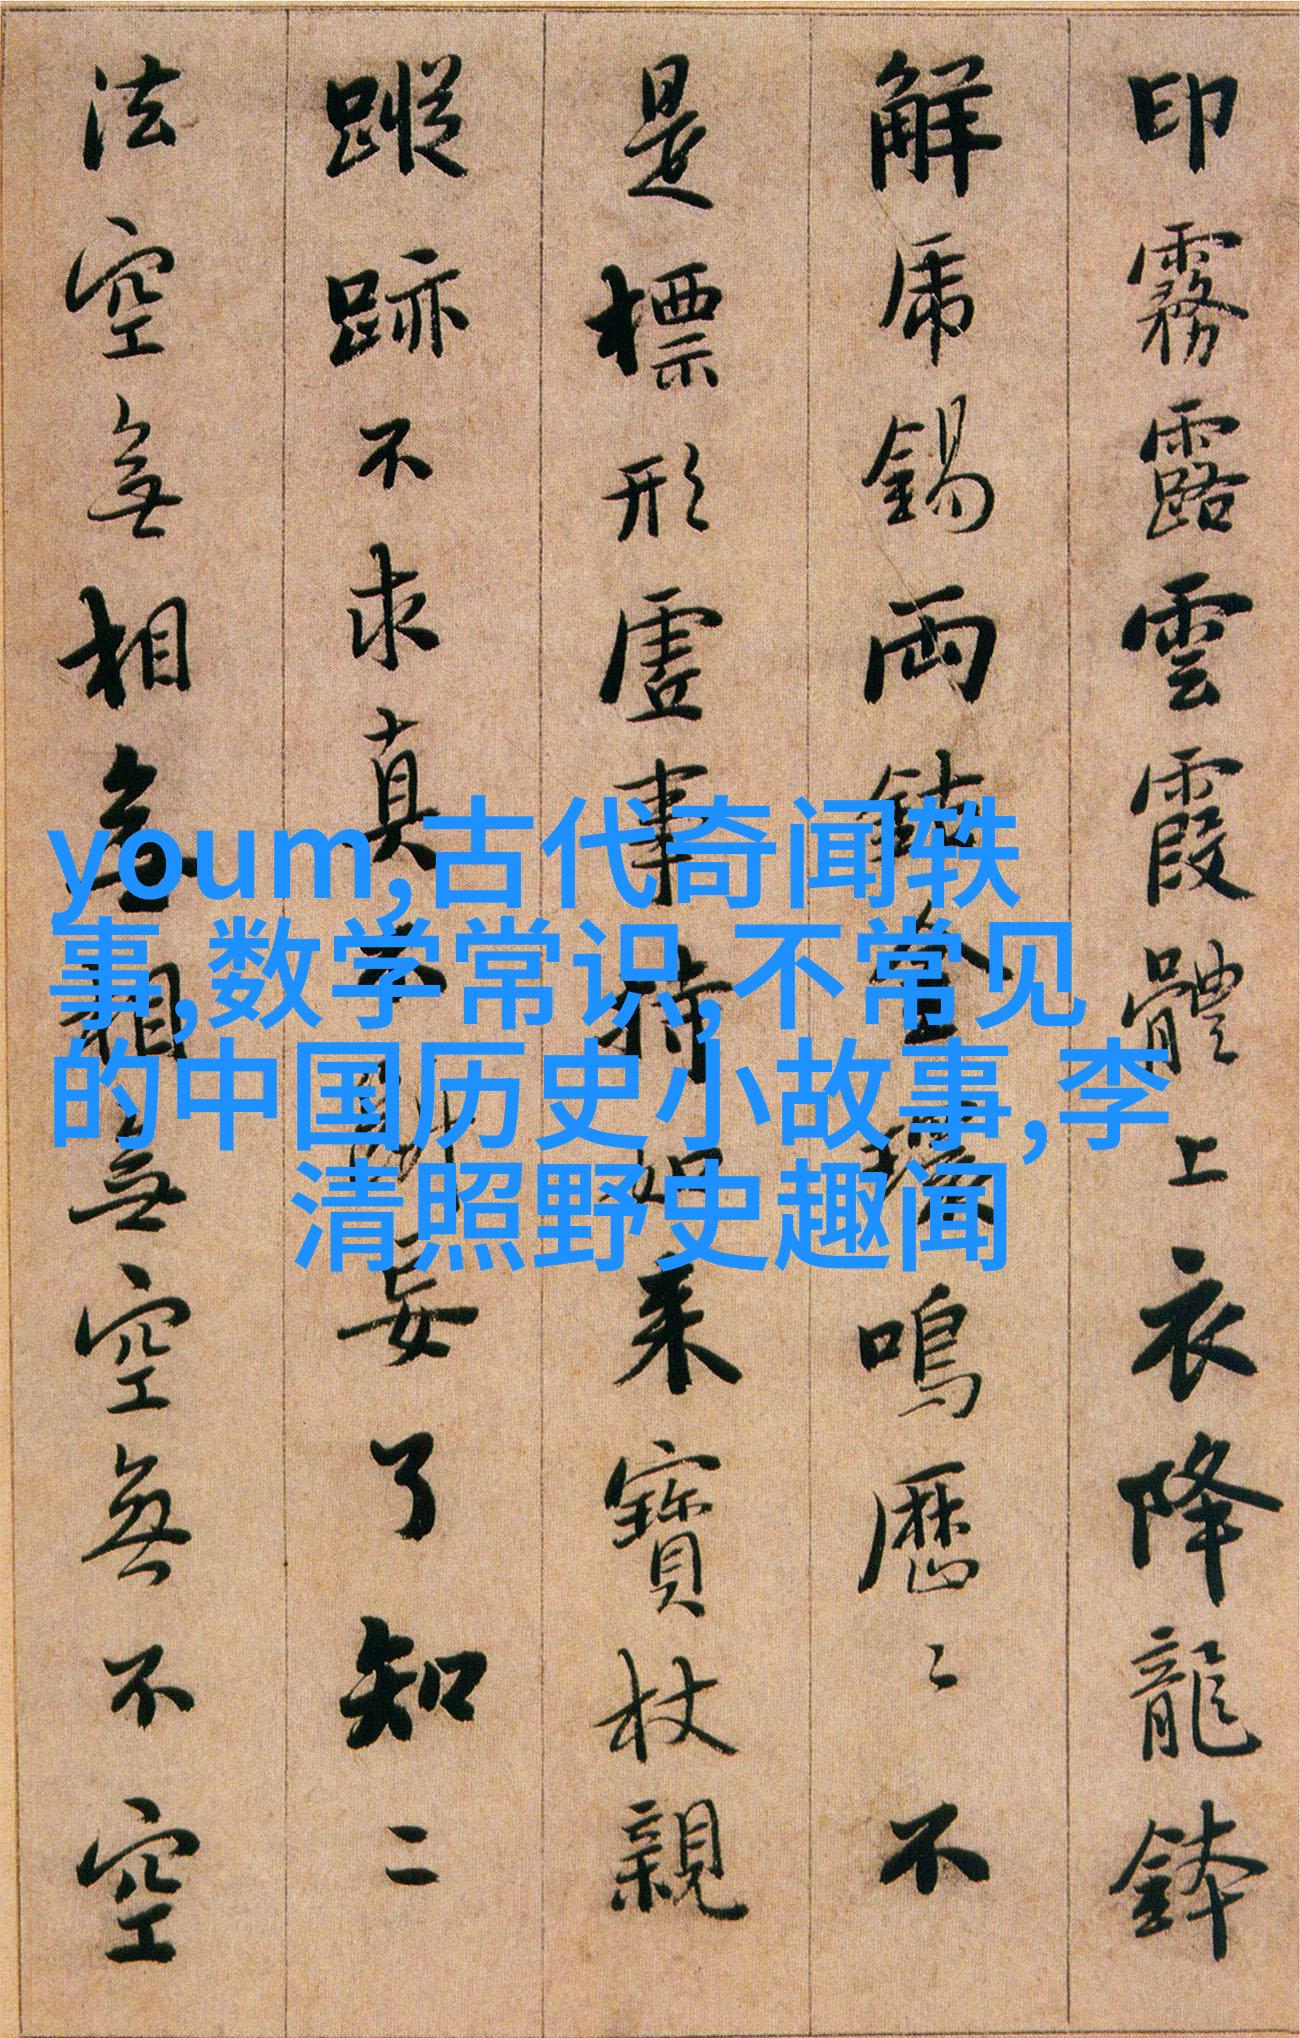 印霧露雲霞體上衣降龍鉢
解虎錫兩鈷金環鳴歷〻不
是標形虛事持如来寶杖親
蹤跡不求真不斷妄了知二
法空無相無相無空無不空
youm,古代奇闻轶
事,数学常识,不常见
的中国历史小故事,李
清照野史趣闻